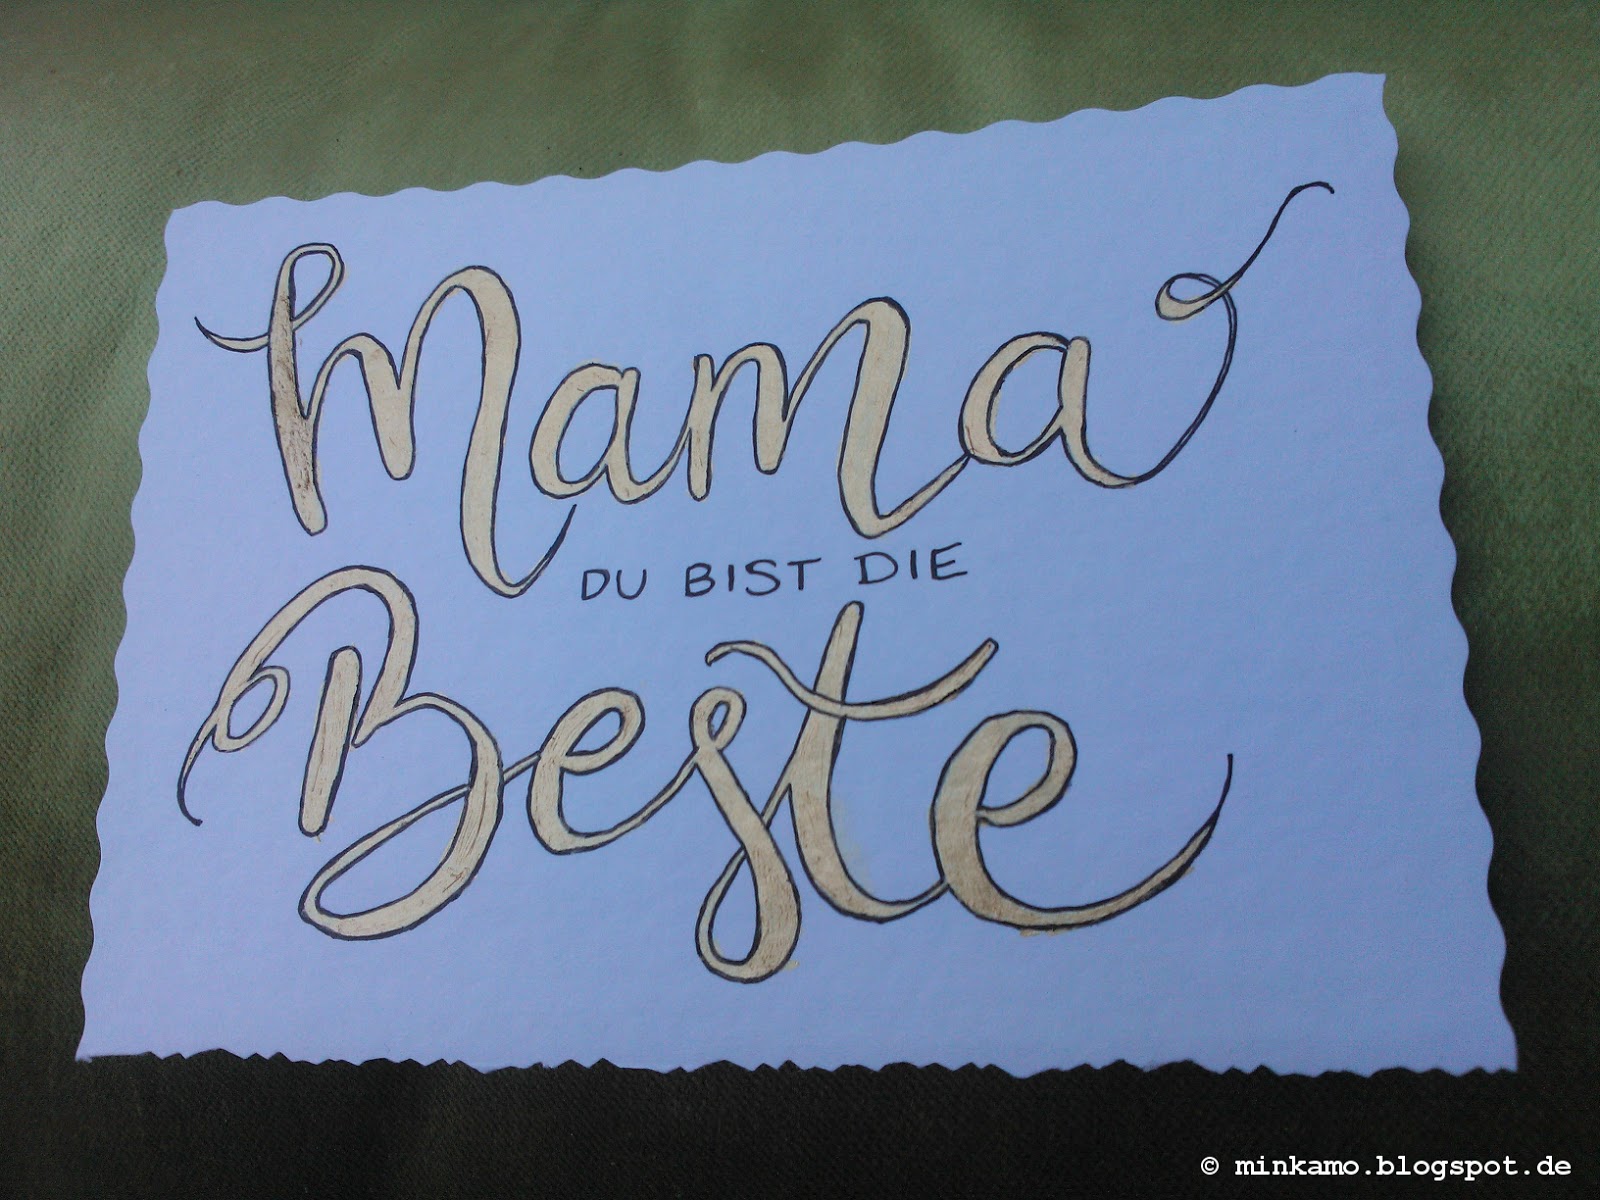 Mama
DU BIST DIE
Beste
© minkamo.blogspot.de